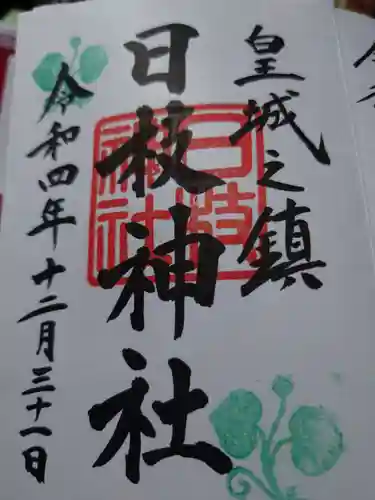 皇城之鎮
日枝神社
令和四年十二月三十一日
日枝神社